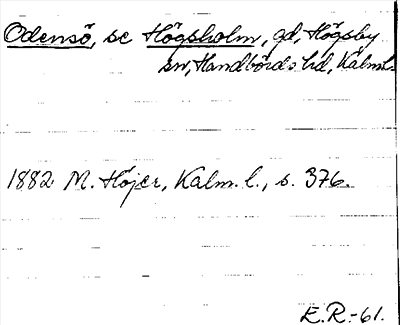 Odensö, se Högsholm, gd, Högsby
sn, Handbörds hd, Kalm. l.
1882 M. Höjer, Kalm. l., s. 376.
E.R.-61.